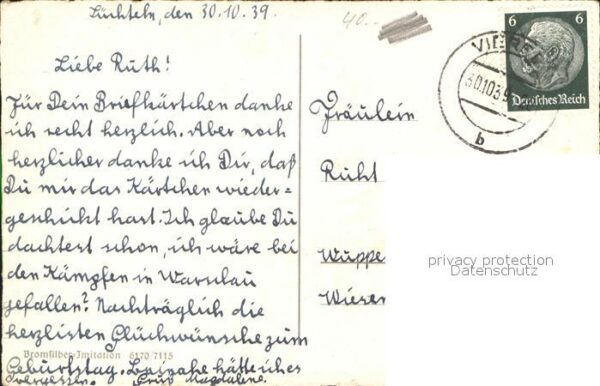 Süchteln, den 30.10.39.
40.-
Liebe Ruth!
Für Dein Briefkärtchen danke
ich recht herzlich. Aber noch
herzlicher danke ich Dir, daß
Du mir das Kärtchen wieder=
geschickt hast. Ich glaube Du
dachtest schon, ich wäre bei
den Kämpfen in Warschau
gefallen? Nachträglich die
herzlisten Glückwünsche zum
Geburtstag. Beinahe hätte ich es
vergessen. Gruß Magdalene.
Bromsilber-Imitation 6170/7115
Fräulein
Ruht
Wuppe
Wiesen
6 6
Deutsches Reich
VIE
30.10.39
b
privacy protection
Datenschutz